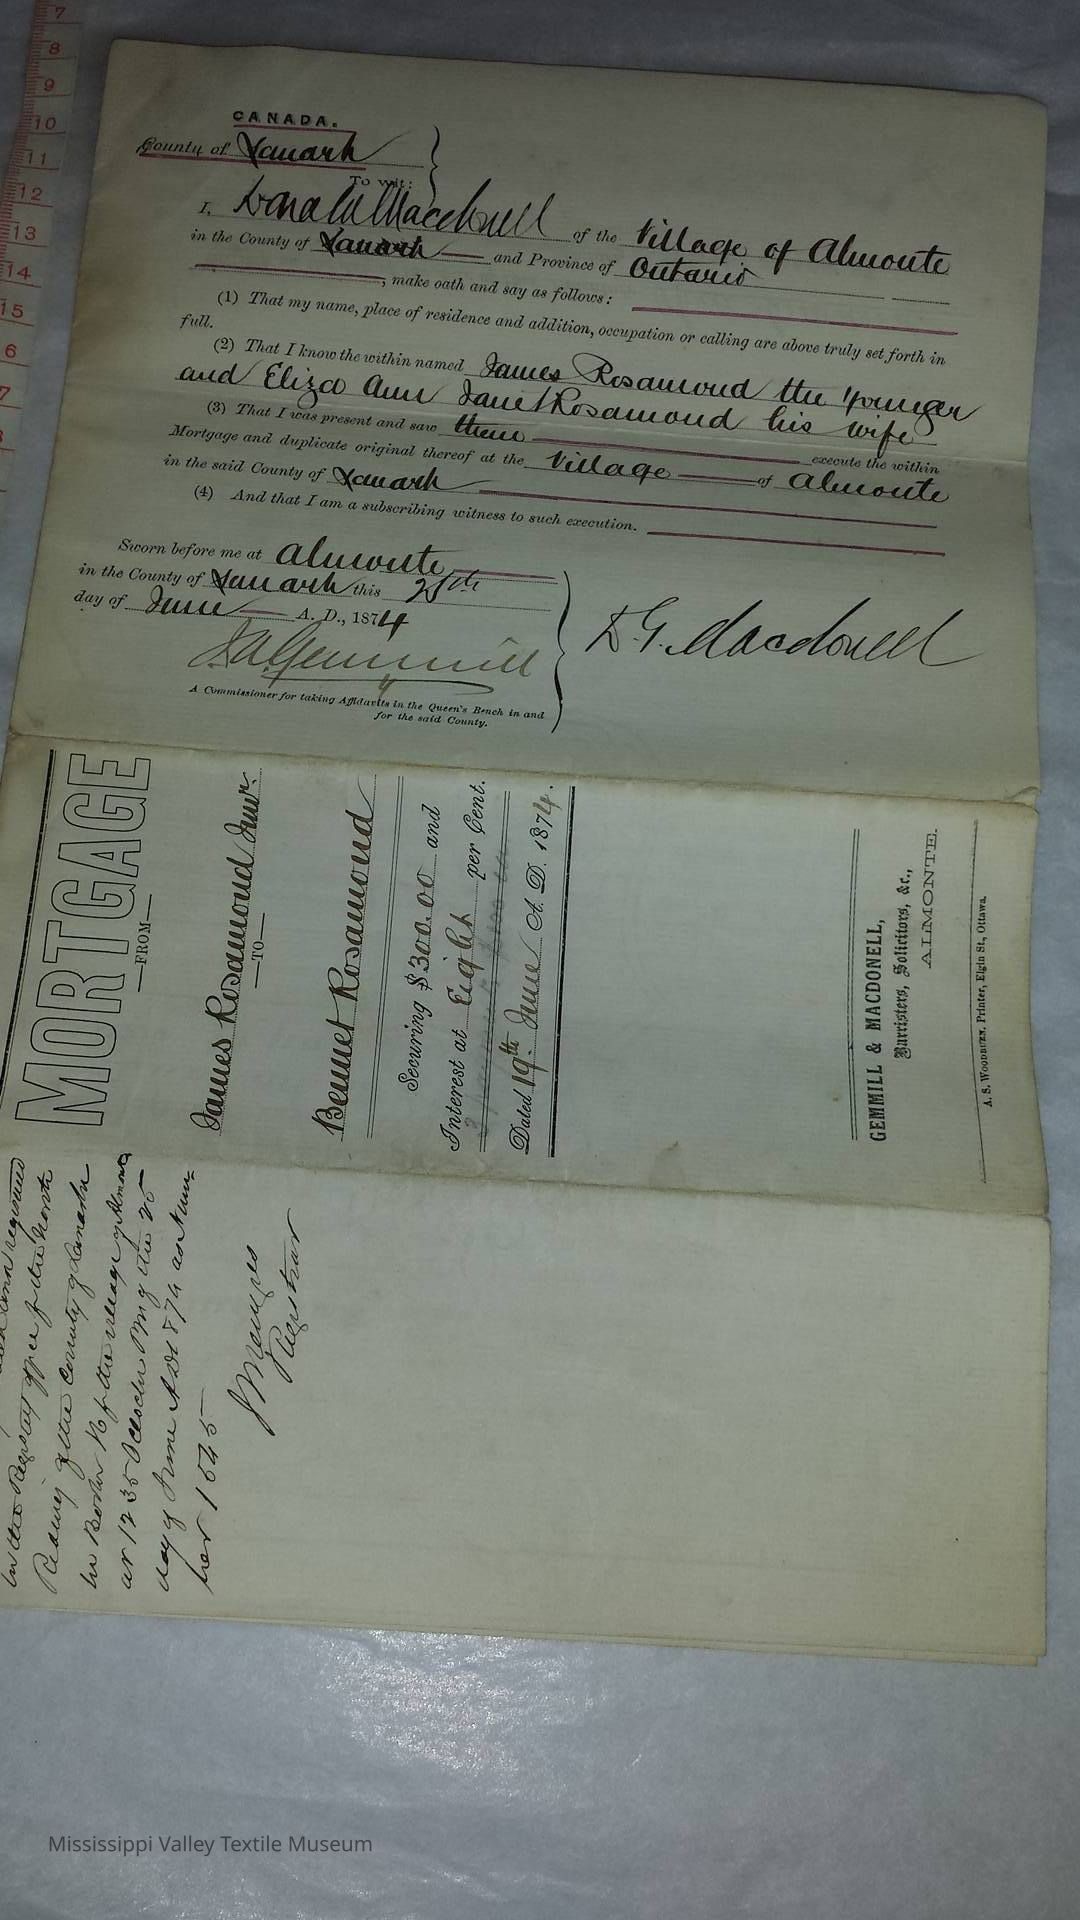 7
8
9
10
11
12
13
14
15
6
7
CANADA.
County of Lanark
To wit:
I, Donald Macdonell of the Village of Almonte
in the County of Lanark and Province of Ontario
, make oath and say as follows:
(1) That my name, place of residence and addition, occupation or calling are above truly set forth in
full.
(2) That I know the within named James Rosamond the Younger
and Eliza Ann Janet Rosamond his wife
(3) That I was present and saw them execute the within
Mortgage and duplicate original thereof at the Village of Almonte
in the said County of Lanark
(4) And that I am a subscribing witness to such execution.
Sworn before me at Almonte
in the County of Lanark this 25th
day of June A. D., 1874
D. G. Macdonell
A Commissioner for taking Affidavits in the Queen's Bench in and
for the said County.
MORTGAGE
—FROM—
James Rosamond Junr.
—TO—
Bennet Rosamond
Securing $300.00 and
Interest at Eight per Cent.
Dated 19th June A. D. 1874.
GEMMILL & MACDONELL,
Barristers, Solicitors, &c.,
ALMONTE.
A. S. WOODBURN, Printer, Elgin St., Ottawa.
in the Registry office of the North
Riding of the County of Lanark
in Book N of the village of Almonte
at 12 35 Oclock PM of the 25
day of June AD 1874 as Num-
ber 1545
Registrar
Mississippi Valley Textile Museum